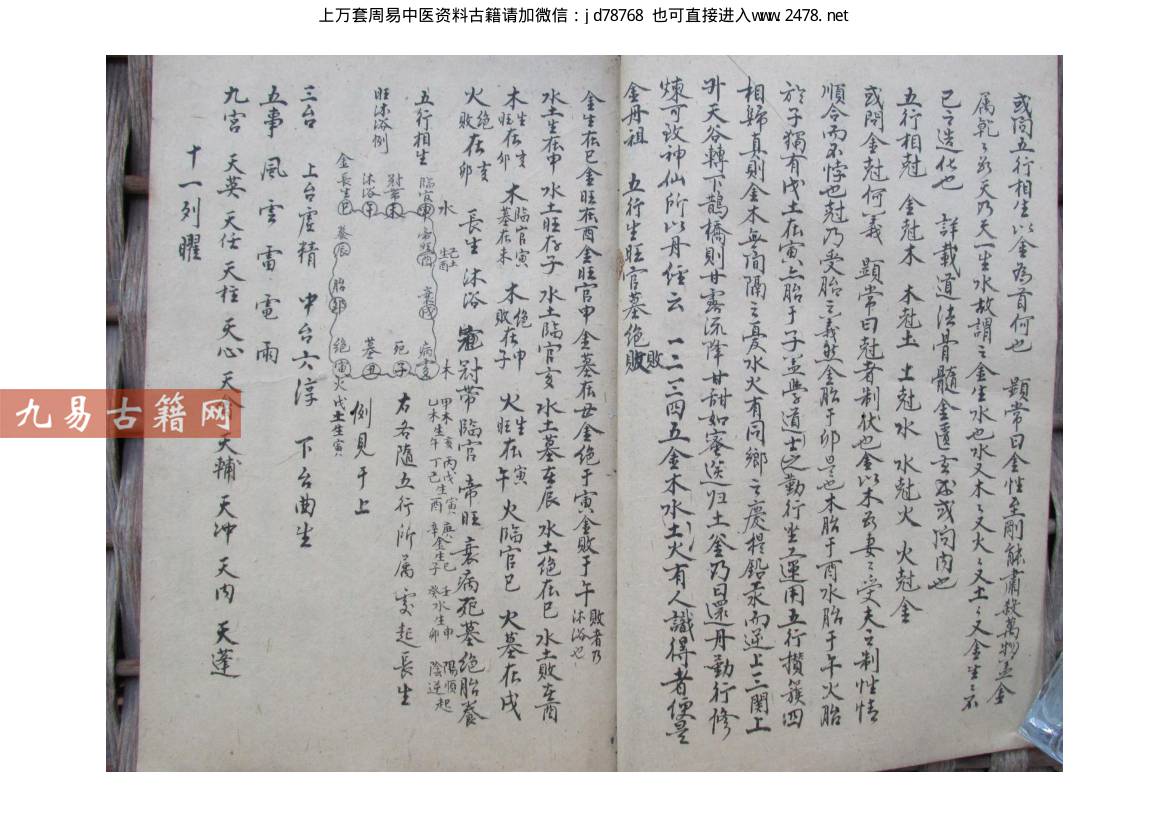 上万套周易中医资料古籍请加微信：jd78768 也可直接进入www.2478.net
或问五行相生以金為首何也 顯常曰金性至剛能肅殺萬物盖金
属乾乾為天乃天一生水故謂之金生水也水又木木又火火又土土又金生生不
已之造化也 詳載道法骨髓金匱玄 或问内也
五行相尅 金尅木 木尅土 土尅水 水尅火 火尅金
或問金尅何義 顯常曰尅者制伏也金以木為妻妻受夫之制性情
順合而不悖也尅乃受胎之義 金胎于卯是也木胎于酉水胎于午火胎
於子獨有戊土在寅 胎于子盖學道士之勤行坐工運用五行攢簇四
相歸真則金木無间隔之憂水火有同鄉之慶提鉛汞而逆上三関上
升天谷轉下鵲橋則甘露流降甘甜如蜜送归土釜乃曰還丹勤行修
煉可致神仙所以丹經云 一二三四五金木水土火有人識得者便是
金丹祖 五行生旺官墓绝敗
金生在巳金旺在酉金旺官申 金墓在丑金绝于寅金敗于午 敗者乃沐浴也
水土生在申 水土旺在子 水土临官亥 水土墓在辰 水土绝在巳 水土敗在酉
木生在亥 旺在卯 木臨官寅 墓在未 木绝在申 敗在子 火生在寅 旺在午 火临官巳 火墓在戌
火绝在亥 敗在卯 長生 沐浴 冠帶 臨官 帝旺 衰病死墓绝胎養
五行相生
旺沐浴例
水
臨官申
帝旺酉
衰戌
病亥
木
死子
墓丑
绝寅
火
胎卯
養辰
金長生巳
沐浴午
冠帶未
戊土生寅
己土生酉
甲木亥 乙木生午 丙戊生寅 丁己酉 庚金生巳 辛金生子 壬水生申 癸水生卯 陽順起 陰逆
右各随五行所属处起長生
例見于上
三台 上台虚精 中台六淳 下台曲生
五事 風 雲 雷 電 雨
九宮 天英 天任 天柱 天心 天禽 天輔 天冲 天内 天蓬
十一列曜
九易古籍网